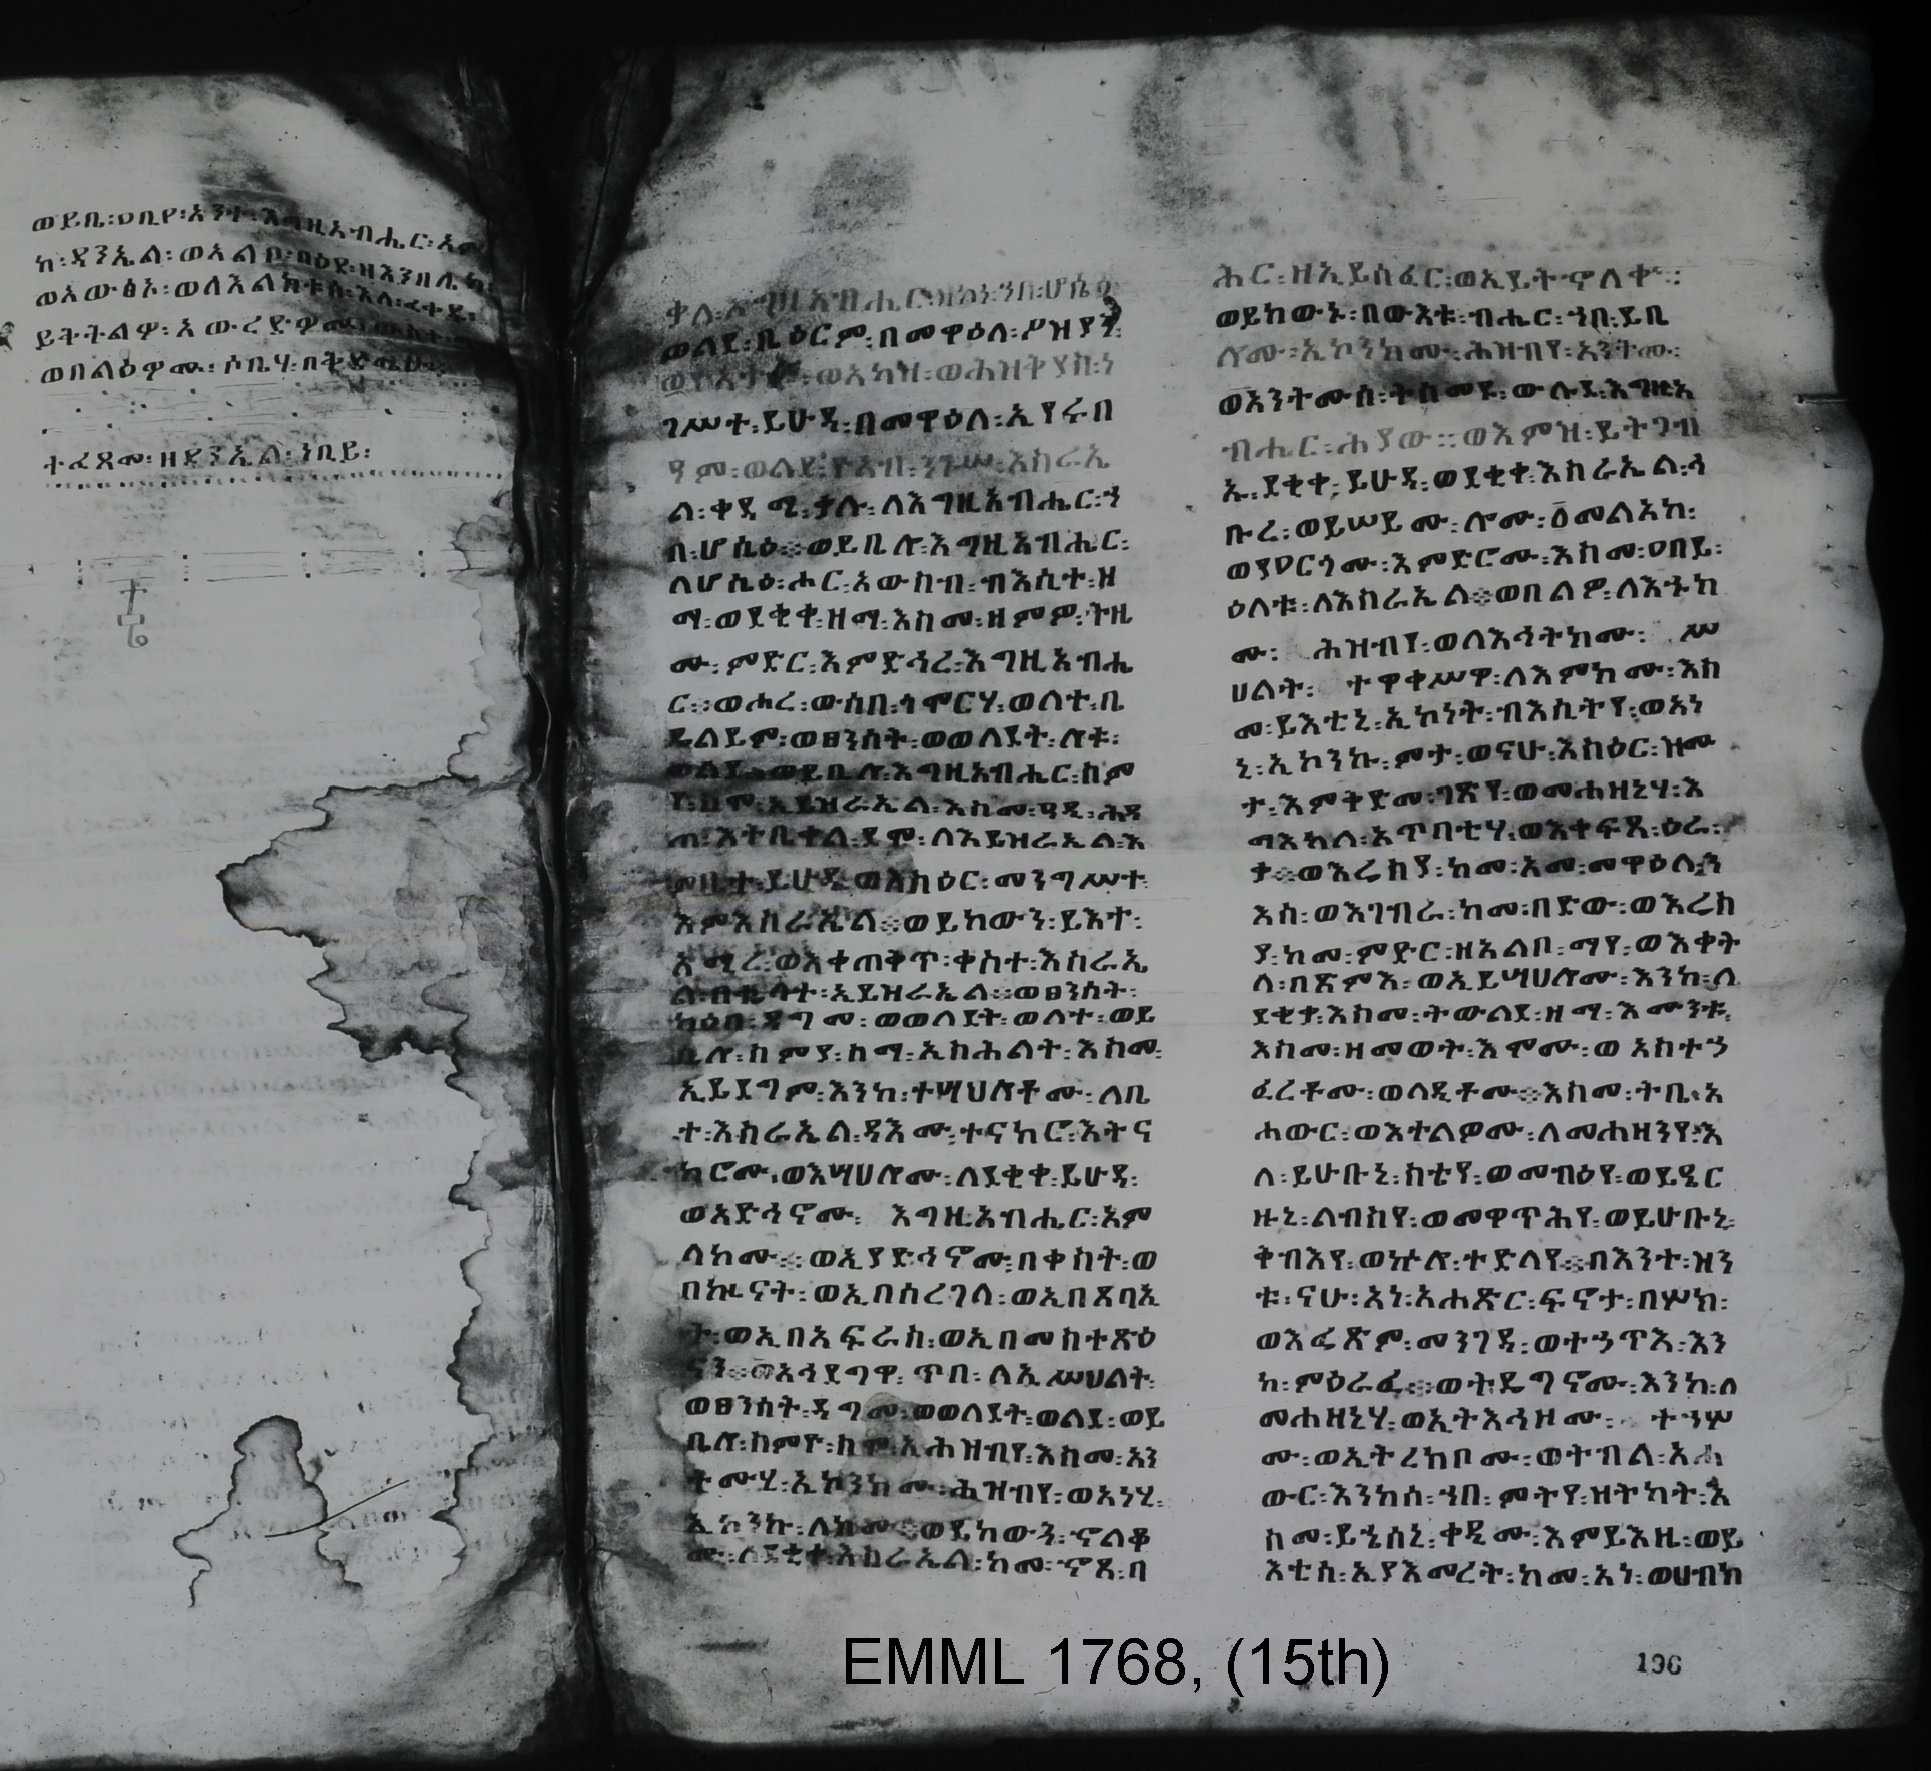 ወይቤ፡ዐቢየ፡አንተ፡እግዚአብሔር፡አም
ከ፡ዳንኤል፡ወአልቦ፡በዕደ፡ዘእንበሌከ፡
ወአውፅኦ፡ወለእልክቱሰ፡እለ፡ፈቀዱ፡
ይትትልዎ፡አውረድዎሙ፡
ወበልዕዎሙ፡ሶቤሃ፡በቅድሜሁ፡
ተፈጸመ፡ዘዳንኤል፡ነቢይ፡
ቃለ፡እግዚአብሔር፡ዘኮነ፡ኀበ፡ሆሴዕ
ወልደ፡ቤዕርም፡በመዋዕለ፡ሥዝያን፡
ወኢዮአታም፡ወአካዝ፡ወሕዝቅያስ፡ነ
ገሥተ፡ይሁዳ፡በመዋዕለ፡ኢየሩብ
ዓም፡ወልደ፡ዮአብ፡ንጉሠ፡እስራኤ
ል፡ቀዳሚ፡ቃሉ፡ለእግዚአብሔር፡ኀ
በ፡ሆሴዕ።ወይቤሎ፡እግዚአብሔር፡
ለሆሴዕ፡ሖር፡አውስብ፡ብእሲተ፡ዘ
ማ፡ወደቂቀ፡ዘማ፡እስመ፡ዘምዎ፡ትዚ
ሙ፡ምድር፡እምድኅረ፡እግዚአብሔ
ር።ወሖረ፡ውስበ፡ጎሞርሃ፡ወለተ፡ቤ
ዴልይም፡ወፀንሰት፡ወወለደት፡ሎቱ፡
ወልደ።ወይቤሎ፡እግዚአብሔር፡ስም
የ፡ስሞ፡ኢይዝራኤል፡እስመ፡ዓዲ፡ሕዳ
ጠ፡እትቤቀል፡ደሞ፡ለኢይዝራኤል፡እ
ምቤተ፡ይሁዳ፡ወእስዕር፡መንግሥተ፡
እምእስራኤል።ወይከውን፡ይእተ፡
አሚረ፡ወእቀጠቅጥ፡ቀስተ፡እስራኤ
ል፡በቈላተ፡ኢይዝራኤል።ወፀንሰት፡
ካዕበ፡ዳግመ፡ወወለደት፡ወለተ፡ወይ
ቤሎ፡ስምያ፡ስማ፡ኢክሕልት፡እስመ፡
ኢይደግም፡እንከ፡ተሣህሎቶሙ፡ለቤ
ተ፡እስራኤል፡ዳእሙ፡ተናክሮ፡እትና
ከሮሙ፡ወእሣሀሎሙ፡ለደቂቀ፡ይሁዳ፡
ወአድኅኖሙ፡እግዚአብሔር፡አም
ላከሙ።ወኢያድኅኖሙ፡በቀስት፡ወ
በኲናት፡ወኢበሰረገላ፡ወኢበጸባኢ
ት፡ወኢበአፍራስ፡ወኢበመስተጽዕ
ናን።ወአኅደግዋ፡ጥበ፡ለኢሥህልት፡
ወፀንሰት፡ዳግመ፡ወወለደት፡ወልደ፡ወይ
ቤሎ፡ስምዮ፡ስሞ፡ኢሕዝብየ፡እስመ፡አን
ተሙሂ፡ኢኮንክሙ፡ሕዝብየ፡ወአነሂ፡
ኢኮንኩ፡ለክሙ።ወይከውን፡ኆልቆ
ሙ፡ለደቂቀ፡እስራኤል፡ከመ፡ኆጻ፡ባ
ሕር፡ዘኢይሰፈር፡ወኢይትኆለቍ።
ወይከውኑ፡በውእቱ፡ብሔር፡ኀበ፡ይቤ
ሎሙ፡ኢኮንክሙ፡ሕዝብየ፡አንትሙ፡
ወአንትሙሰ፡ትሰመዩ፡ውሉደ፡እግዚአ
ብሔር፡ሕያው።ወእምዝ፡ይትጋብ
ኡ፡ደቂቀ፡ይሁዳ፡ወደቂቀ፡እስራኤል፡ኅ
ቡረ፡ወይሠይሙ፡ሎሙ፡፩መልአከ፡
ወያዐርጎሙ፡እምድሮሙ፡እስመ፡ዐበይ፡
ዕለቱ፡ለእስራኤል።ወበልዎ፡ለእኁክ
ሙ፡ሕዝብየ፡ወለእኅትክሙ፡ሥ
ህልት፡ተዋቀሥዋ፡ለእምክሙ፡እስ
መ፡ይእቲኒ፡ኢኮነት፡ብእሲትየ፡ወአነ
ኒ፡ኢኮንኩ፡ምታ፡ወናሁ፡እስዕር፡ዝሙ
ታ፡እምቅድመ፡ገጽየ፡ወመሐዘኒሃ፡እ
ማእከለ፡አጥባቲሃ፡ወእቀፍጻ፡ዕራ
ቃ።ወእሬስያ፡ከመ፡አመ፡መዋዕለ፡ን
እስ፡ወእገብራ፡ከመ፡በድው፡ወእሬስ
ያ፡ከመ፡ምድር፡ዘአልቦ፡ማየ፡ወእቀት
ላ፡በጽምእ፡ወኢይሣሀሎሙ፡እንከ፡ለ
ደቂቃ፡እስመ፡ትውልደ፡ዘማ፡እሙንቱ፡
እስመ፡ዘመወት፡እሞሙ፡ወአስተኃ
ፈረቶሙ፡ወላዲቶሙ።እስመ፡ትቤ፡አ
ሐውር፡ወእተልዎሙ፡ለመሐዘንየ፡እ
ለ፡ይሁቡኒ፡ስቴየ፡ወመብዕየ፡ወይዴር
ዙኒ፡ልብስየ፡ወመዋጥሕየ፡ወይሁቡኒ፡
ቅብእየ፡ወኵሎ፡ተድላየ።በእንተ፡ዝን
ቱ፡ናሁ፡አነ፡አሐጽር፡ፍኖታ፡በሦክ፡
ወእፌጽም፡መንገዳ፡ወተኃጥእ፡እን
ከ፡ምዕራፈ።ወትዴግኖሙ፡እንከ፡ለ
መሐዘኒሃ፡ወኢትእኅዞሙ፡ተኀሦ
ሙ፡ወኢትረክቦሙ፡ወትብል፡አሐ
ውር፡እንከሰ፡ኀበ፡ምትየ፡ዝትካት፡እ
ስመ፡ይኄሰኒ፡ቀዲሙ፡እምይእዜ፡ወይ
እቲሰ፡ኢያእመረት፡ከመ፡አነ፡ወሀብክ
EMML 1768, (15th)
196